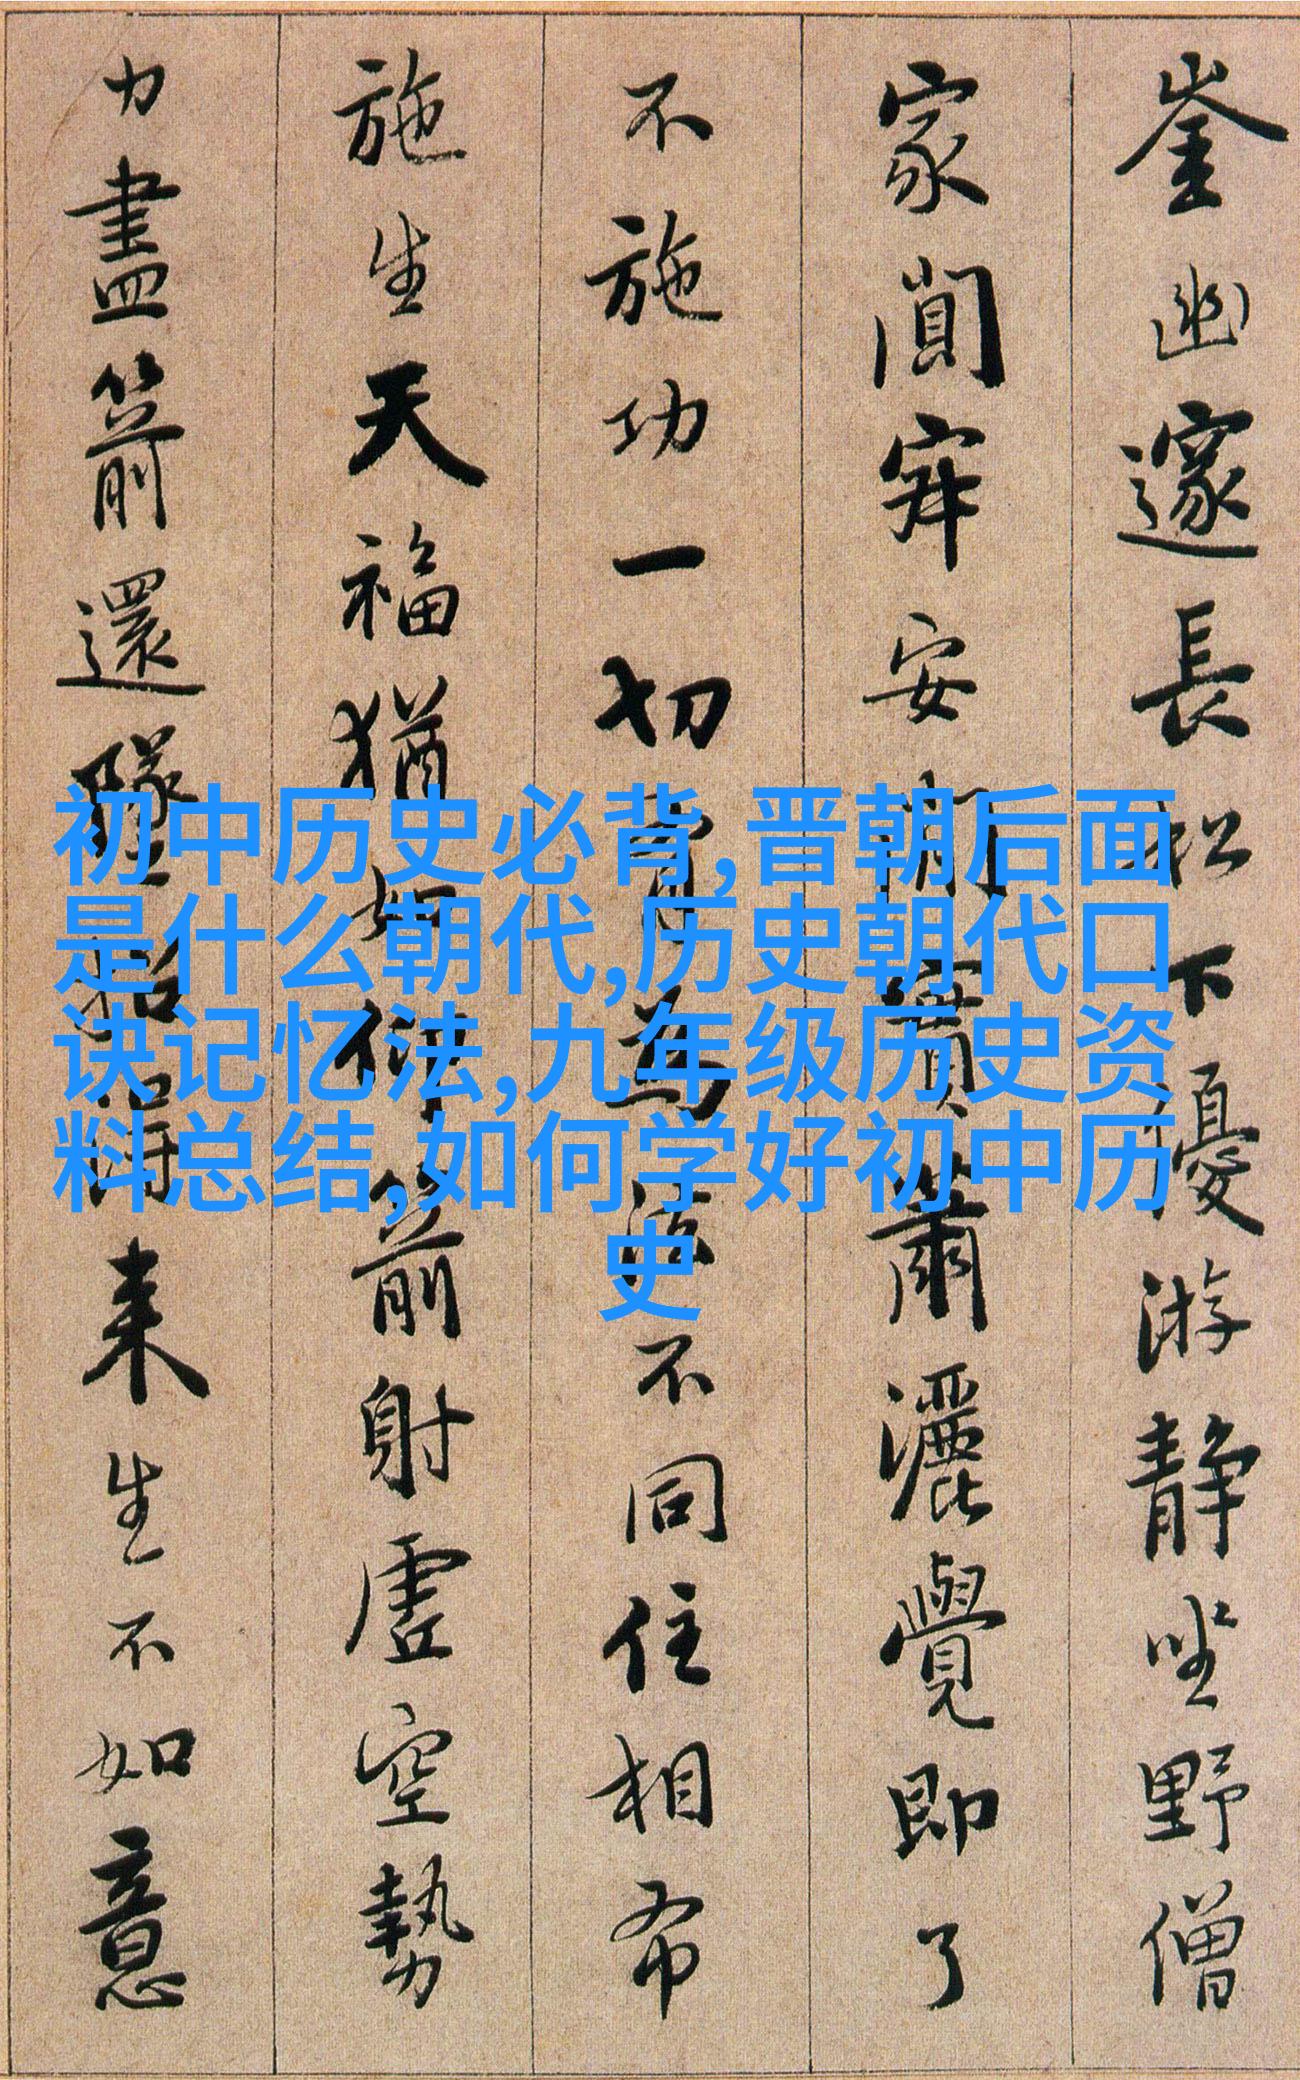 崟幽邃長松下優游静坐野僧
家闃寂安居實蕭灑覺即了
不施功一切有為法不同住相布
施生天福猶如仰箭射虛空勢
力盡箭還墜招得来生不如意
初中历史必背,晋朝后面
是什么朝代,历史朝代口
诀记忆法,九年级历史资
料总结,如何学好初中历
史